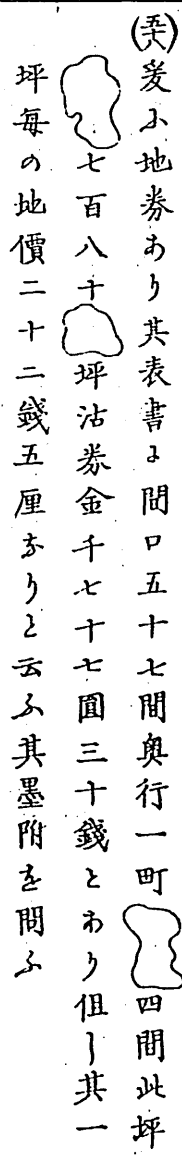 爰に地券あり其表書に間口五十七間奥行一町四間此坪
七百八十坪沽券金千七十七圓三十錢とあり但し其一
坪毎の地價二十二錢五厘なりと云ふ其墨附を問ふ